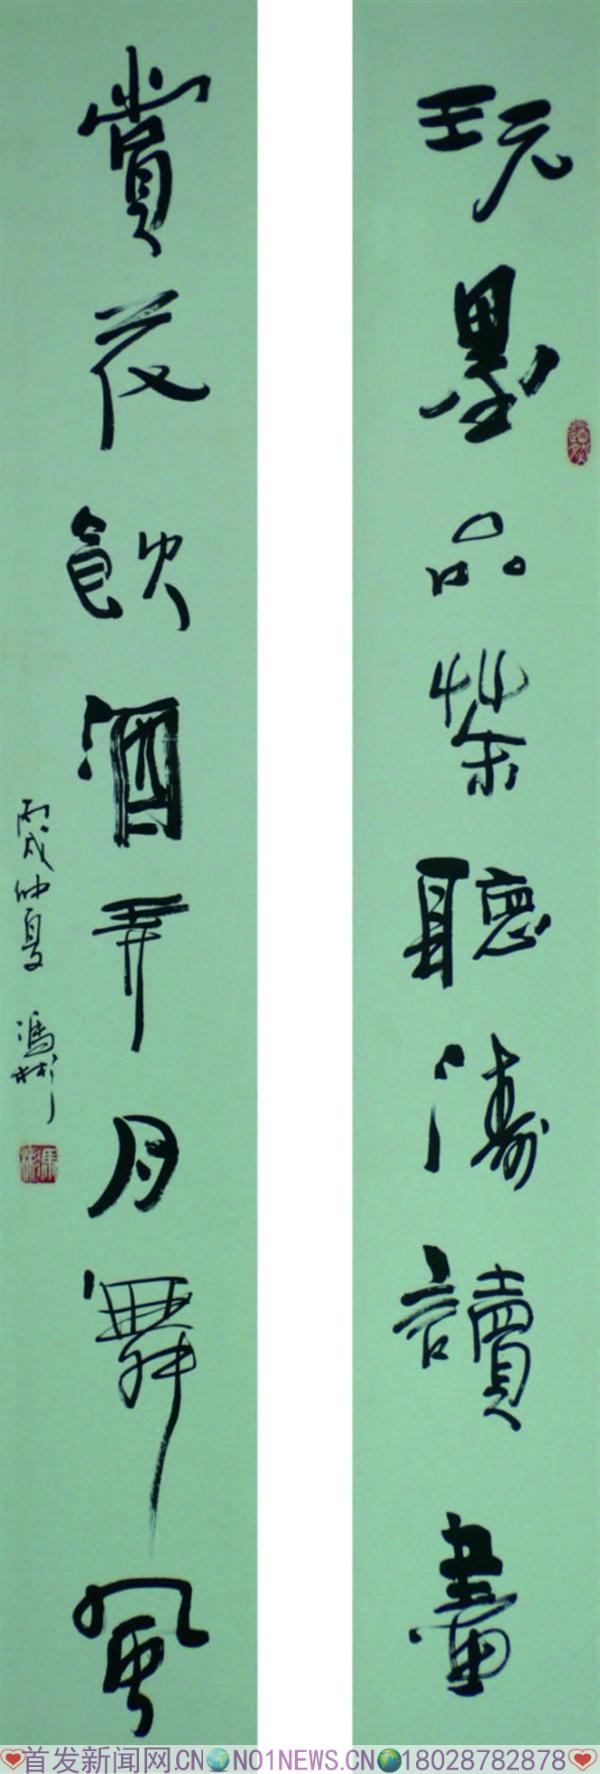 玩墨品茶聽濤讀畫
賞花飲酒弄月舞風
丙戌仲夏 馮彬
首发新闻网.CN NO1NEWS.CN 18028782878